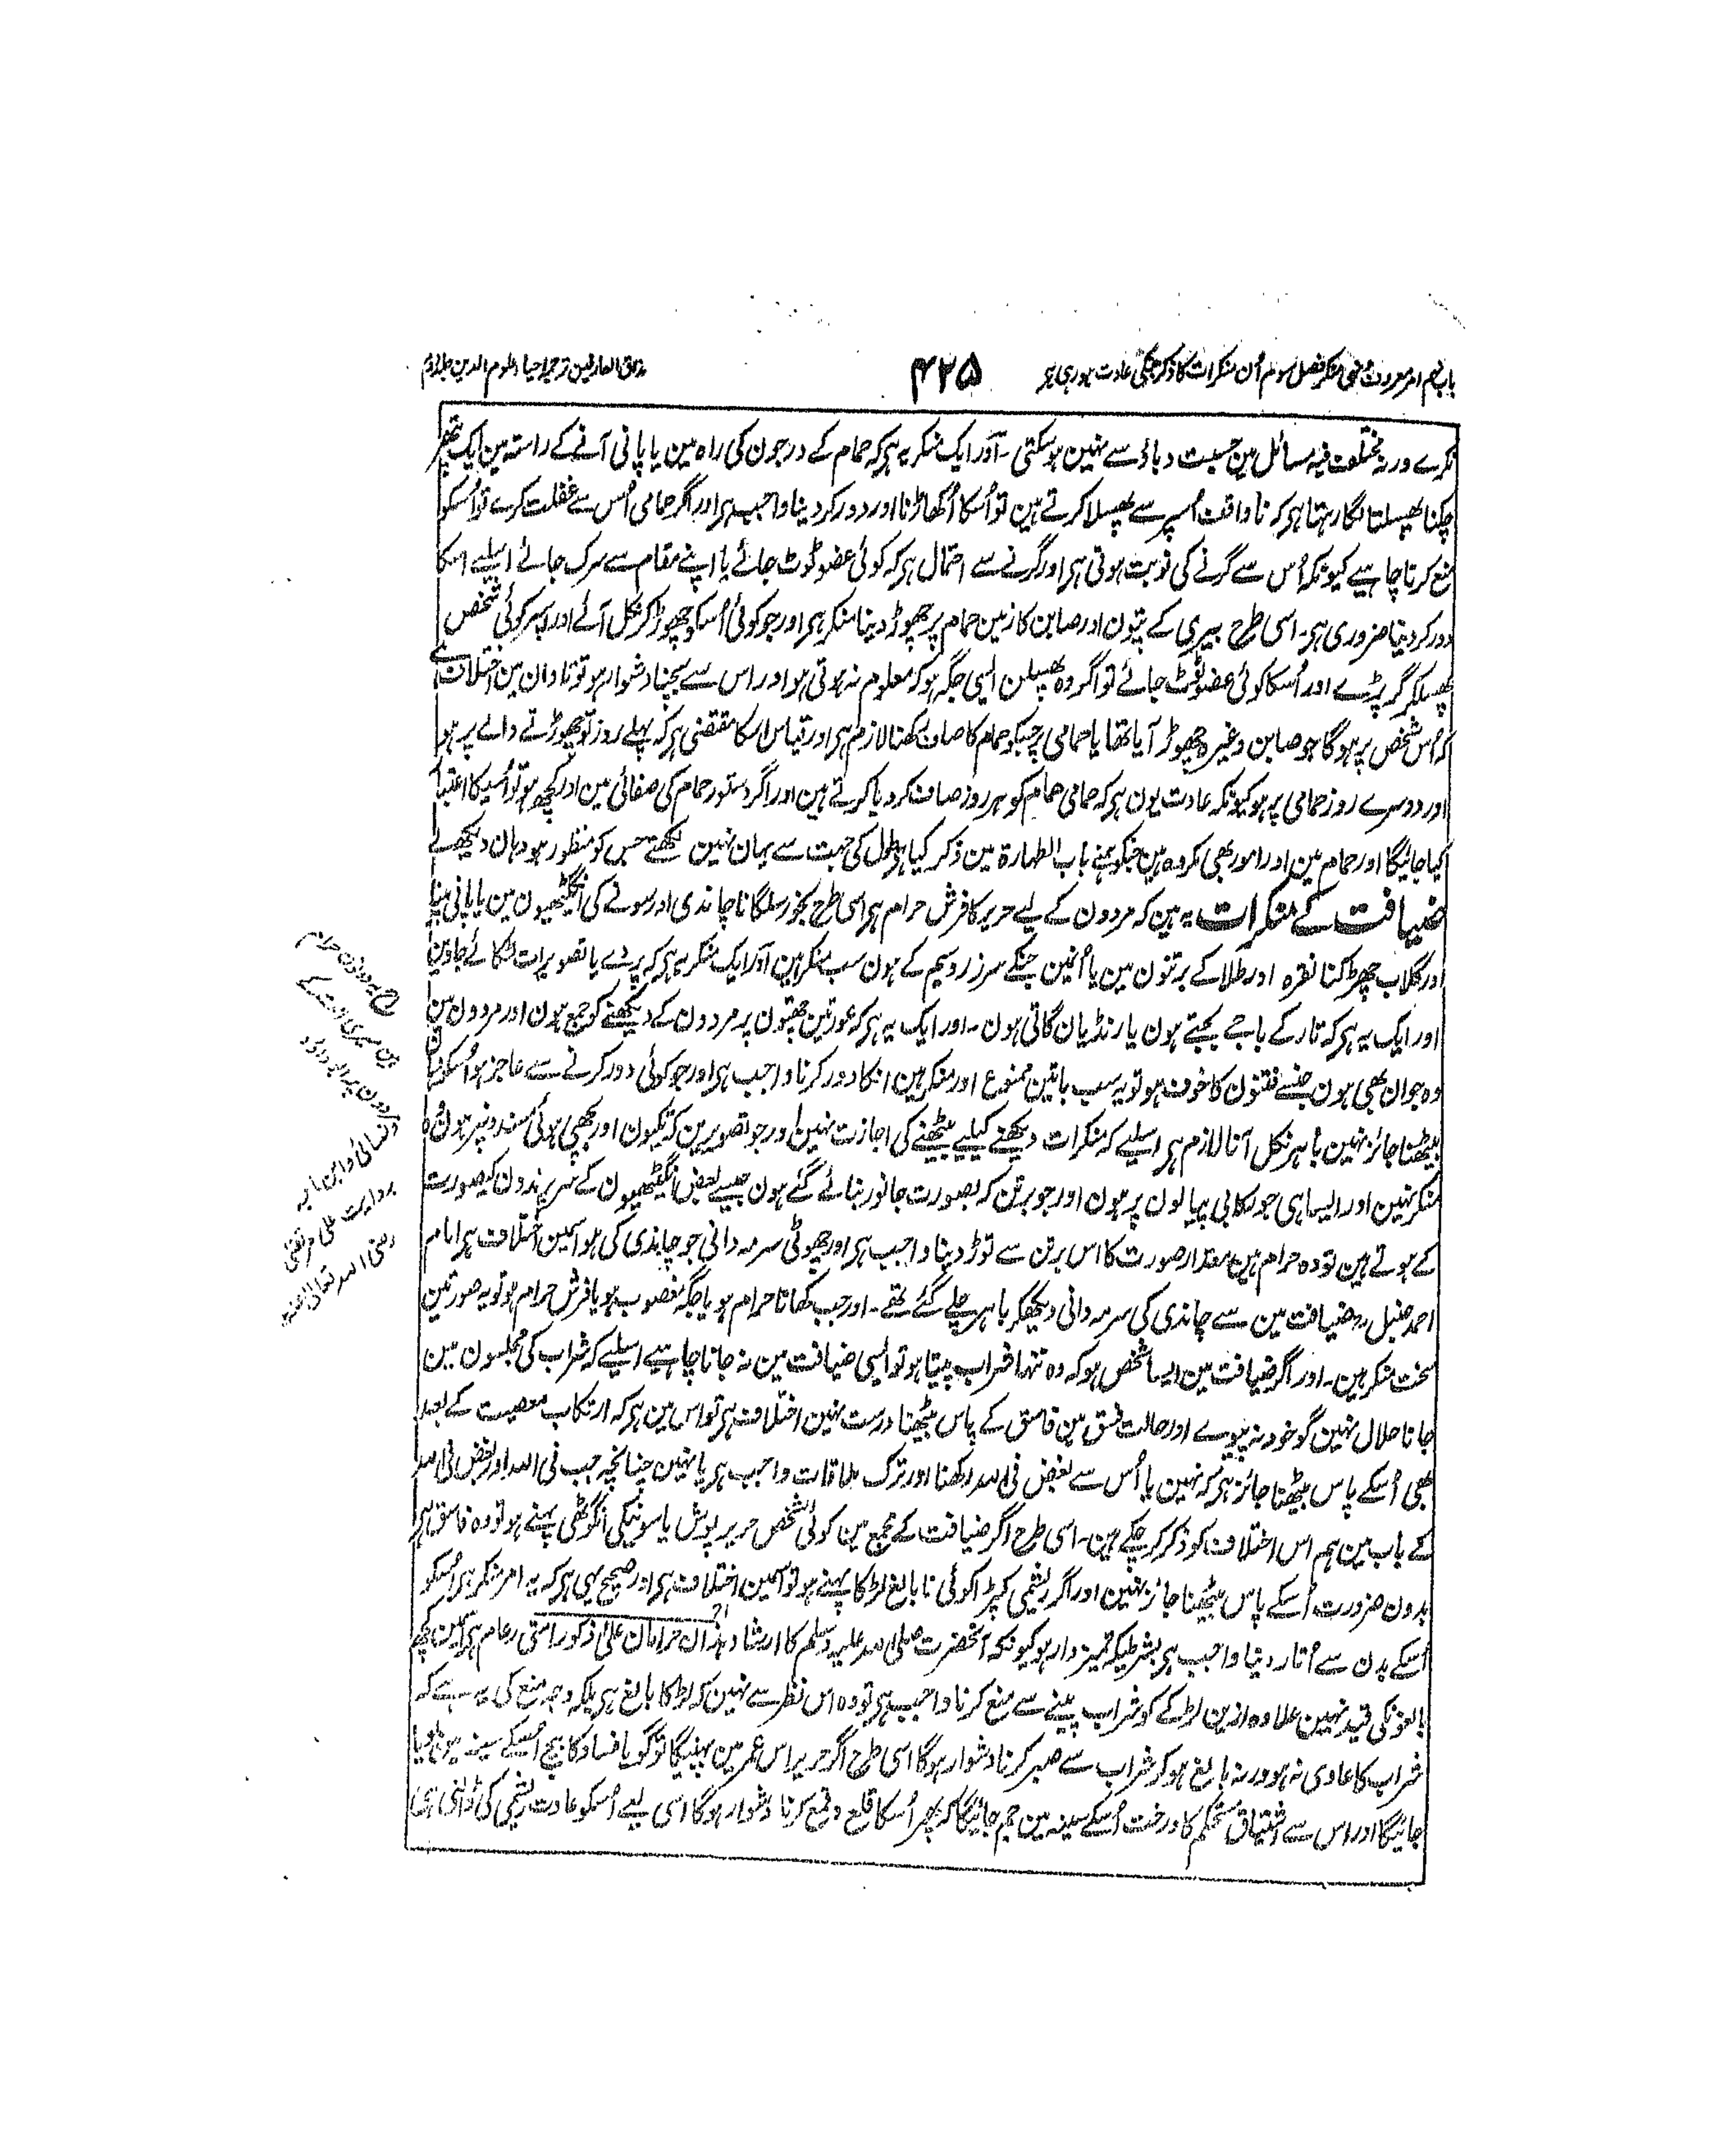 باب نہم امر معروف و نہی منکر فصل سوم اُن منکرات کا ذکر جنکی عادت ہو رہی ہر
۴۲۵
مذاق العارفین ترجمہ احیاء علوم الدین جلد دوم
نکرے ورنہ مختلف فیہ مسائل مین حسبت دباؤ سے نہین ہو سکتی۔ اور ایک منکر یہ ہر کہ حمام کے درجون کی راہ مین یا پانی آنے کے راستہ مین ایک پتھر
چکنا پھسلتا لگا رہتا ہر کہ ناواقف اُسپر سے پھسلا کرتے ہین تو اُسکا اُکھاڑنا اور دور کر دینا واجب ہر اور اگر حمامی اُس سے غفلت کرے تو اُسکو
منع کرنا چاہیے کیونکہ اُس سے گرنے کی نوبت ہوتی ہر اور گرنے سے احتمال ہر کہ کوئی عضو ٹوٹ جائے یا اپنے مقام سے سرک جائے اسلیے اسکا
دور کر دینا ضروری ہر۔ اسی طرح بیری کے پتون اور صابن کا زمین حمام پر چھوڑ دینا منکر ہر اور جو کوئی اُسکو چھوڑ کر نکل آئے اور اسپر کوئی شخص
پھسلکر گر پڑے اور اُسکا کوئی عضو ٹوٹ جائے تو اگر وہ پھسلن ایسی جگہ ہو کہ معلوم نہ ہوتی ہو اور اس سے بچنا دشوار ہو تو تاوان مین اختلاف ہے
کہ اُس شخص پر ہوگا جو صابن وغیرہ چھوڑ آیا تھا یا حمامی پر جسکو حمام کا صاف رکھنا لازم ہر اور قیاس اسکا مقتضی ہر کہ پہلے روز تو چھوڑنے والے پر ہو
اور دوسرے روز حمامی پر ہو کیونکہ عادت یون ہر کہ حمامی حمام کو ہر روز صاف کر دیا کرتے ہین اور اگر دستور حمام کی صفائی مین اور کچھ ہو تو اُسیکا اعتبار
کیا جائیگا اور حمام مین اور امور بھی مکروہ ہین جنکو ہمنے باب الطہارۃ مین ذکر کیا ہر طول کی جہت سے یہان نہین لکھتے جس کو منظور ہو وہان دیکھ لے
ضیافت کے منکرات یہ ہین کہ مردون کے لیے حریر کا فرش حرام ہر اسی طرح بخور سلگانا چاندی اور سونے کی انگیٹھیون مین یا پانی پینا
اور گلاب چھڑکنا نقرہ اور طلا کے برتنون مین یا اُنمین جنکے سر زر و سیم کے ہون سب منکر ہین اور ایک منکر یہ ہر کہ پردے یا تصویرات لٹکائے جاوین
اور ایک یہ ہر کہ تار کے باجے بجتے ہون یا رنڈیان گاتی ہون۔ اور ایک یہ ہر کہ عورتین چھتون پر مردون کے دیکھنے کو جمع ہون اور مردون مین
وہ جوان بھی ہون جنسے فتنون کا خوف ہو تو یہ سب باتین ممنوع اور منکر ہین انکا دور کرنا واجب ہر اور جو کوئی دور کرنے سے عاجز ہو اُسکو وہان
بیٹھنا جائز نہین باہر نکل آنا لازم ہر اسلیے کہ منکرات دیکھنے کیلیے بیٹھنے کی اجازت نہین اور جو تصویرین کہ تکیون اور بچھی ہوئی مسندونپر ہون وہ
منکر نہین اور ایسا ہی جو رکابی پیالون پر ہون اور جو برتن کہ بصورت جانور بنائے گئے ہون جیسے بعض انگیٹھیون کے سر پرندون کیصورت
کے ہوتے ہین تو وہ حرام ہین مقدار صورت کا اس برتن سے توڑ دینا واجب ہر اور چھوٹی سرمہ دانی جو چاندی کی ہو اسمین اختلاف ہر امام
احمد حنبل رہ ضیافت مین سے چاندی کی سرمہ دانی دیکھکر باہر چلے گئے تھے۔ اور جب کھانا حرام ہو یا جگہ مغصوب ہو یا فرش حرام ہو تو یہ صورتین
سخت منکر ہین۔ اور اگر ضیافت مین ایسا شخص ہو کہ وہ تنہا شراب پیتا ہو تو ایسی ضیافت مین نہ جانا چاہیے اسلیے کہ شراب کی مجلسون مین
جانا حلال نہین گو خود نہ پیوے اور حالت فسق مین فاسق کے پاس بیٹھنا درست نہین اختلاف ہر تو اس مین ہر کہ ارتکاب معصیت کے بعد
بھی اُسکے پاس بیٹھنا جائز ہر کہ نہین یا اُس سے بغض فی اللہ رکھنا اور ترک ملاقات واجب ہر یا نہین چنانچہ حب فی اللہ اور بغض فی اللہ
کے باب مین ہم اس اختلاف کو ذکر کر چکے ہین۔ اسی طرح اگر ضیافت کے مجمع مین کوئی شخص حریر پوش یا سونیکی انگوٹھی پہنے ہو تو وہ فاسق ہر
بدون ضرورت اُسکے پاس بیٹھنا جائز نہین اور اگر ریشمی کپڑا کوئی نابالغ لڑکا پہنے ہو تو اسمین اختلاف ہر اور صحیح یہی ہر کہ یہ امر منکر ہر اُسکو
اُسکے بدن سے اُتار دینا واجب ہر بشرطیکہ تمیز دار ہو کیونکہ آنحضرت صلی اللہ علیہ وسلم کا ارشاد ہذان حرامان علیٰ ذکور امتی عام ہر اسمین کچھ
بالغونکی قید نہین علاوہ ازین لڑکے کو شراب پینے سے منع کرنا واجب ہر تو وہ اس نظر سے نہین کہ لڑکا بالغ ہر بلکہ وجہ منع کی یہ ہے کہ
شراب کا عادی نہ ہو ورنہ بالغ ہو کر شراب سے صبر کرنا دشوار ہوگا اسی طرح اگر حریر اس عمر مین پہنیگا تو گویا فساد کا بیج اُسکے سینہ مین بو دیا
جائیگا اور اس سے اشتیاق مستحکم کا درخت اُسکے سینہ مین جم جائیگا کہ پھر اُسکا قلع و قمع کرنا دشوار ہوگا اسی لیے اُسکو عادت ریشمی کی ڈالنی ہی
یہ دونون حرام
ہین میری امت کے
مردون پر ابو داؤد
و نسائی و ابن ماجہ
بروایت علی مرتضی
رضی اللہ تعالی عنہ